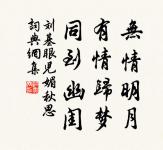 無情明月
有情歸夢
同到幽閨
劉基眼兒媚秋思
詞典網集